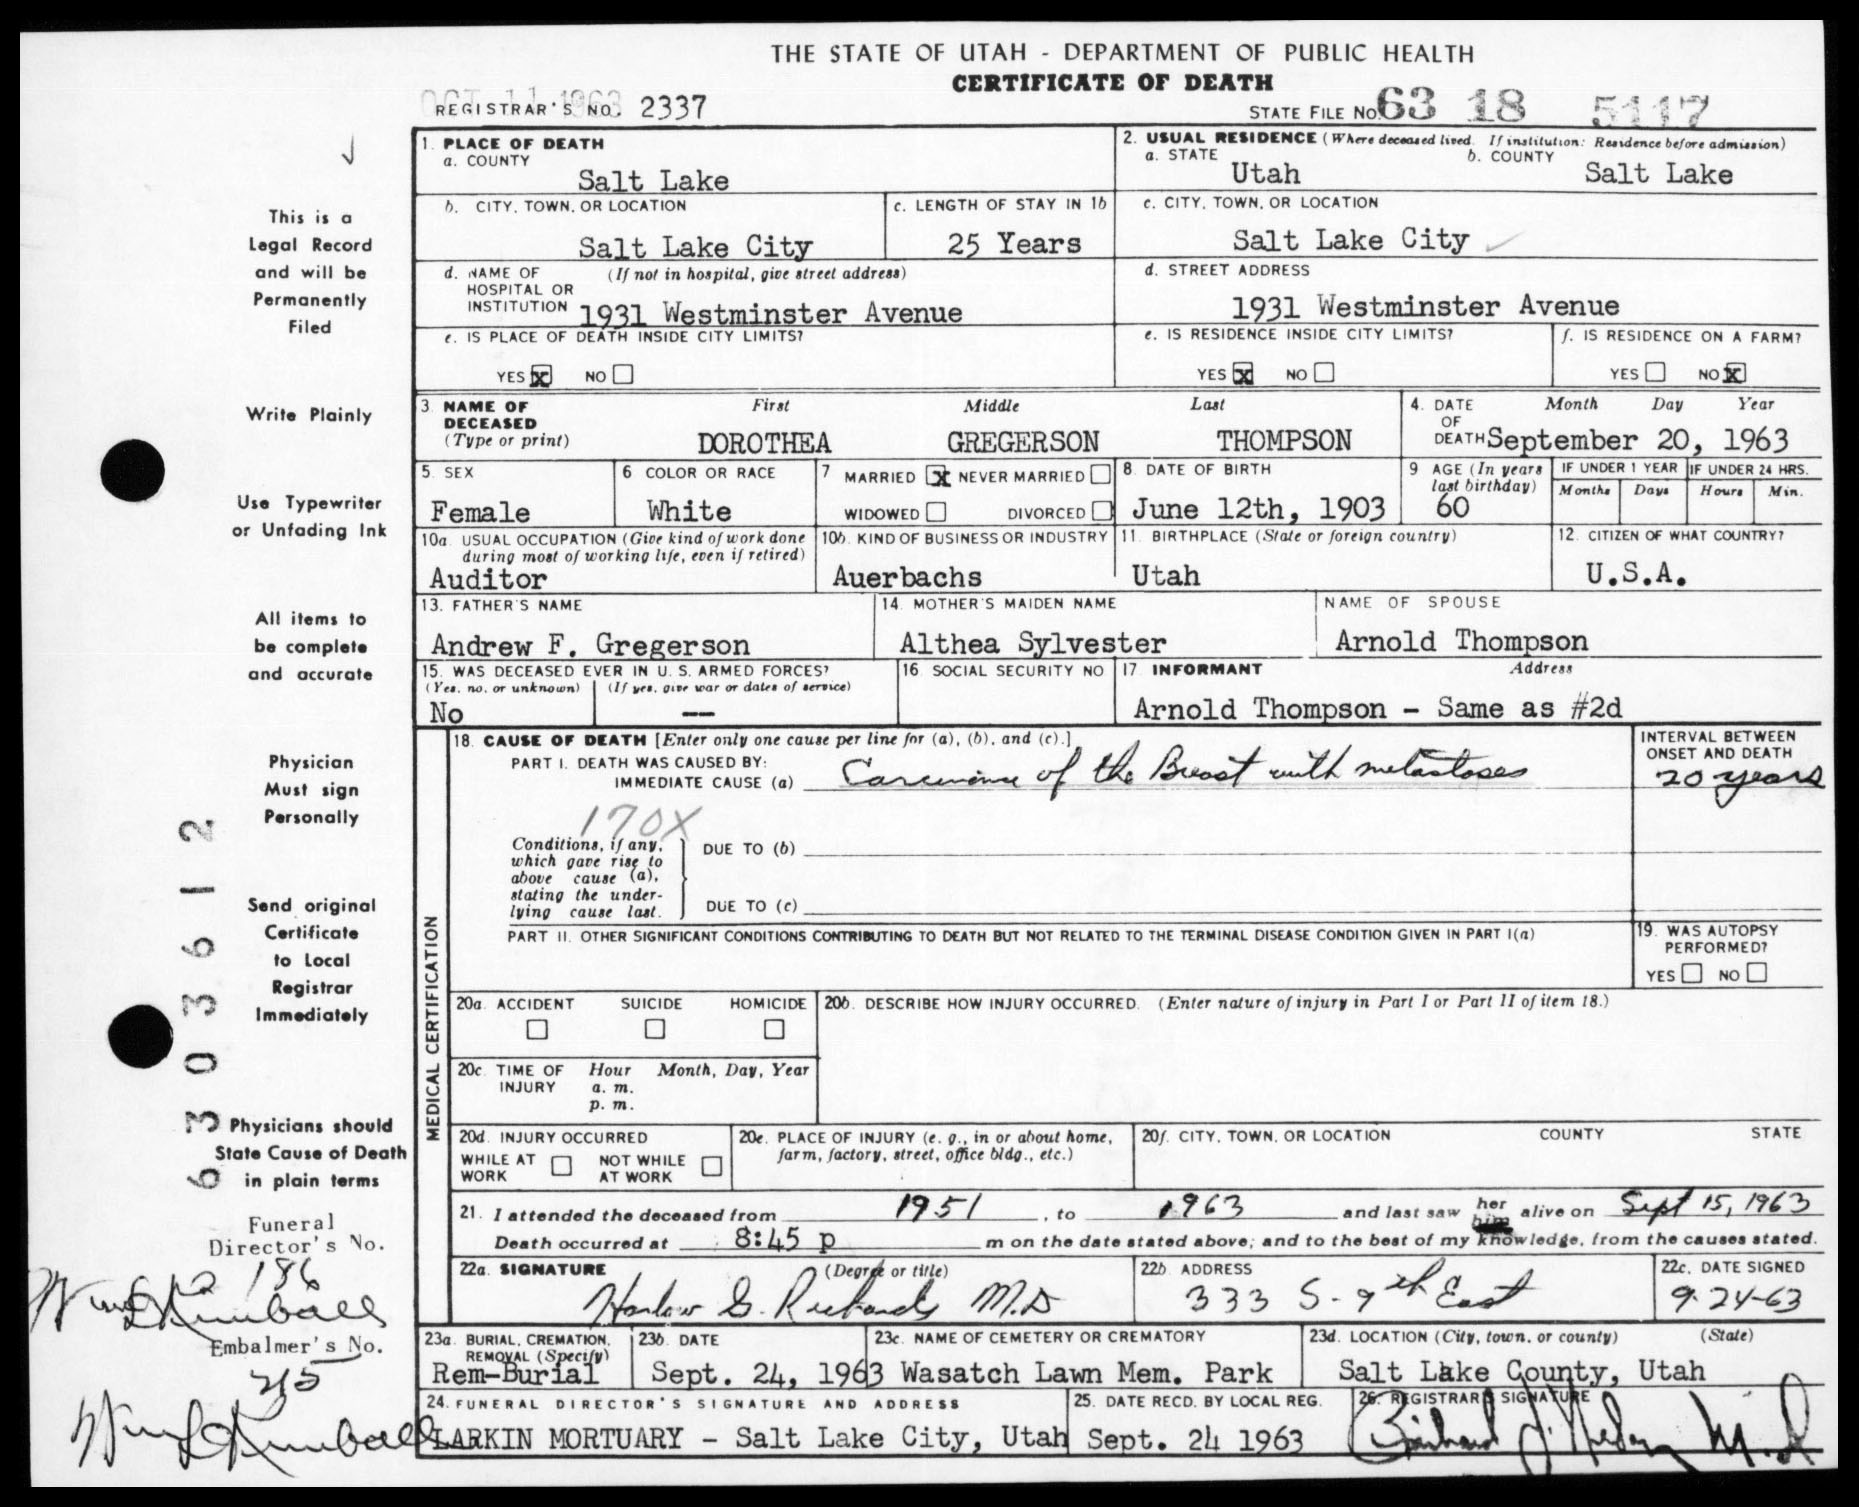 THE STATE OF UTAH - DEPARTMENT OF PUBLIC HEALTH
CERTIFICATE OF DEATH
OCT 11 1963
REGISTRAR'S NO. 2337
STATE FILE NO. 63 18 5117
1. PLACE OF DEATH
a. COUNTY
Salt Lake
2. USUAL RESIDENCE (Where deceased lived. If institution: Residence before admission)
a. STATE b. COUNTY
Utah Salt Lake
b. CITY, TOWN, OR LOCATION
Salt Lake City
c. LENGTH OF STAY IN 1b
25 Years
c. CITY, TOWN, OR LOCATION
Salt Lake City
d. NAME OF (If not in hospital, give street address)
HOSPITAL OR
INSTITUTION 1931 Westminster Avenue
d. STREET ADDRESS
1931 Westminster Avenue
e. IS PLACE OF DEATH INSIDE CITY LIMITS?
YES X NO
e. IS RESIDENCE INSIDE CITY LIMITS?
YES X NO
f. IS RESIDENCE ON A FARM?
YES NO X
3. NAME OF First Middle Last
DECEASED
(Type or print) DOROTHEA GREGERSON THOMPSON
4. DATE Month Day Year
OF
DEATH September 20, 1963
5. SEX
Female
6 COLOR OR RACE
White
7 MARRIED X NEVER MARRIED
WIDOWED DIVORCED
8. DATE OF BIRTH
June 12th, 1903
9 AGE (In years
last birthday)
60
IF UNDER 1 YEAR
Months Days
IF UNDER 24 HRS.
Hours Min.
10a. USUAL OCCUPATION (Give kind of work done
during most of working life, even if retired)
Auditor
10b. KIND OF BUSINESS OR INDUSTRY
Auerbachs
11. BIRTHPLACE (State or foreign country)
Utah
12. CITIZEN OF WHAT COUNTRY?
U.S.A.
13. FATHER'S NAME
Andrew F. Gregerson
14. MOTHER'S MAIDEN NAME
Althea Sylvester
NAME OF SPOUSE
Arnold Thompson
15. WAS DECEASED EVER IN U.S. ARMED FORCES?
(Yes, no, or unknown) (If yes, give war or dates of service)
No —
16. SOCIAL SECURITY NO
17 INFORMANT Address
Arnold Thompson - Same as #2d
MEDICAL CERTIFICATION
18. CAUSE OF DEATH [Enter only one cause per line for (a), (b), and (c).]
PART I. DEATH WAS CAUSED BY:
IMMEDIATE CAUSE (a) Carcinoma of the Breast with metastases
INTERVAL BETWEEN
ONSET AND DEATH
20 years
170X
Conditions, if any,
which gave rise to
above cause (a),
stating the under-
lying cause last.
DUE TO (b)
DUE TO (c)
PART II. OTHER SIGNIFICANT CONDITIONS CONTRIBUTING TO DEATH BUT NOT RELATED TO THE TERMINAL DISEASE CONDITION GIVEN IN PART I(a)
19. WAS AUTOPSY
PERFORMED?
YES NO
20a. ACCIDENT SUICIDE HOMICIDE
20b. DESCRIBE HOW INJURY OCCURRED. (Enter nature of injury in Part I or Part II of item 18.)
20c. TIME OF Hour Month, Day, Year
INJURY a. m.
p. m.
20d. INJURY OCCURRED
WHILE AT NOT WHILE
WORK AT WORK
20e. PLACE OF INJURY (e. g., in or about home,
farm, factory, street, office bldg., etc.)
20f. CITY, TOWN, OR LOCATION COUNTY STATE
21. I attended the deceased from 1951, to 1963 and last saw her him alive on Sept 15, 1963
Death occurred at 8:45 p m on the date stated above; and to the best of my knowledge, from the causes stated.
22a. SIGNATURE (Degree or title)
Harlow G. Richards M.D
22b. ADDRESS
333 S - 9th East
22c. DATE SIGNED
9-24-63
23a. BURIAL, CREMATION,
REMOVAL (Specify)
Rem-Burial
23b. DATE
Sept. 24, 1963
23c. NAME OF CEMETERY OR CREMATORY
Wasatch Lawn Mem. Park
23d. LOCATION (City, town, or county) (State)
Salt Lake County, Utah
24. FUNERAL DIRECTOR'S SIGNATURE AND ADDRESS
LARKIN MORTUARY - Salt Lake City, Utah
25. DATE RECD. BY LOCAL REG.
Sept. 24 1963
26. REGISTRAR'S SIGNATURE
This is a
Legal Record
and will be
Permanently
Filed
Write Plainly
Use Typewriter
or Unfading Ink
All items to
be complete
and accurate
Physician
Must sign
Personally
Send original
Certificate
to Local
Registrar
Immediately
Physicians should
State Cause of Death
in plain terms
63036 12
Funeral
Director's No.
186
Kimball
Embalmer's No.
215
Kimball